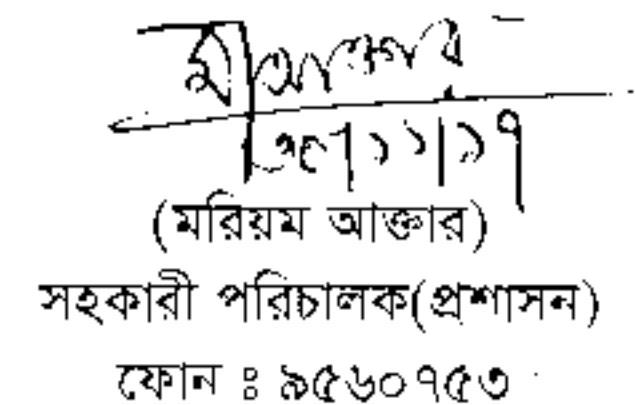 ৩০|১১|১৭
(মরিয়ম আক্তার)
সহকারী পরিচালক(প্রশাসন)
ফোন ঃ ৯৫৬০৭৫৩